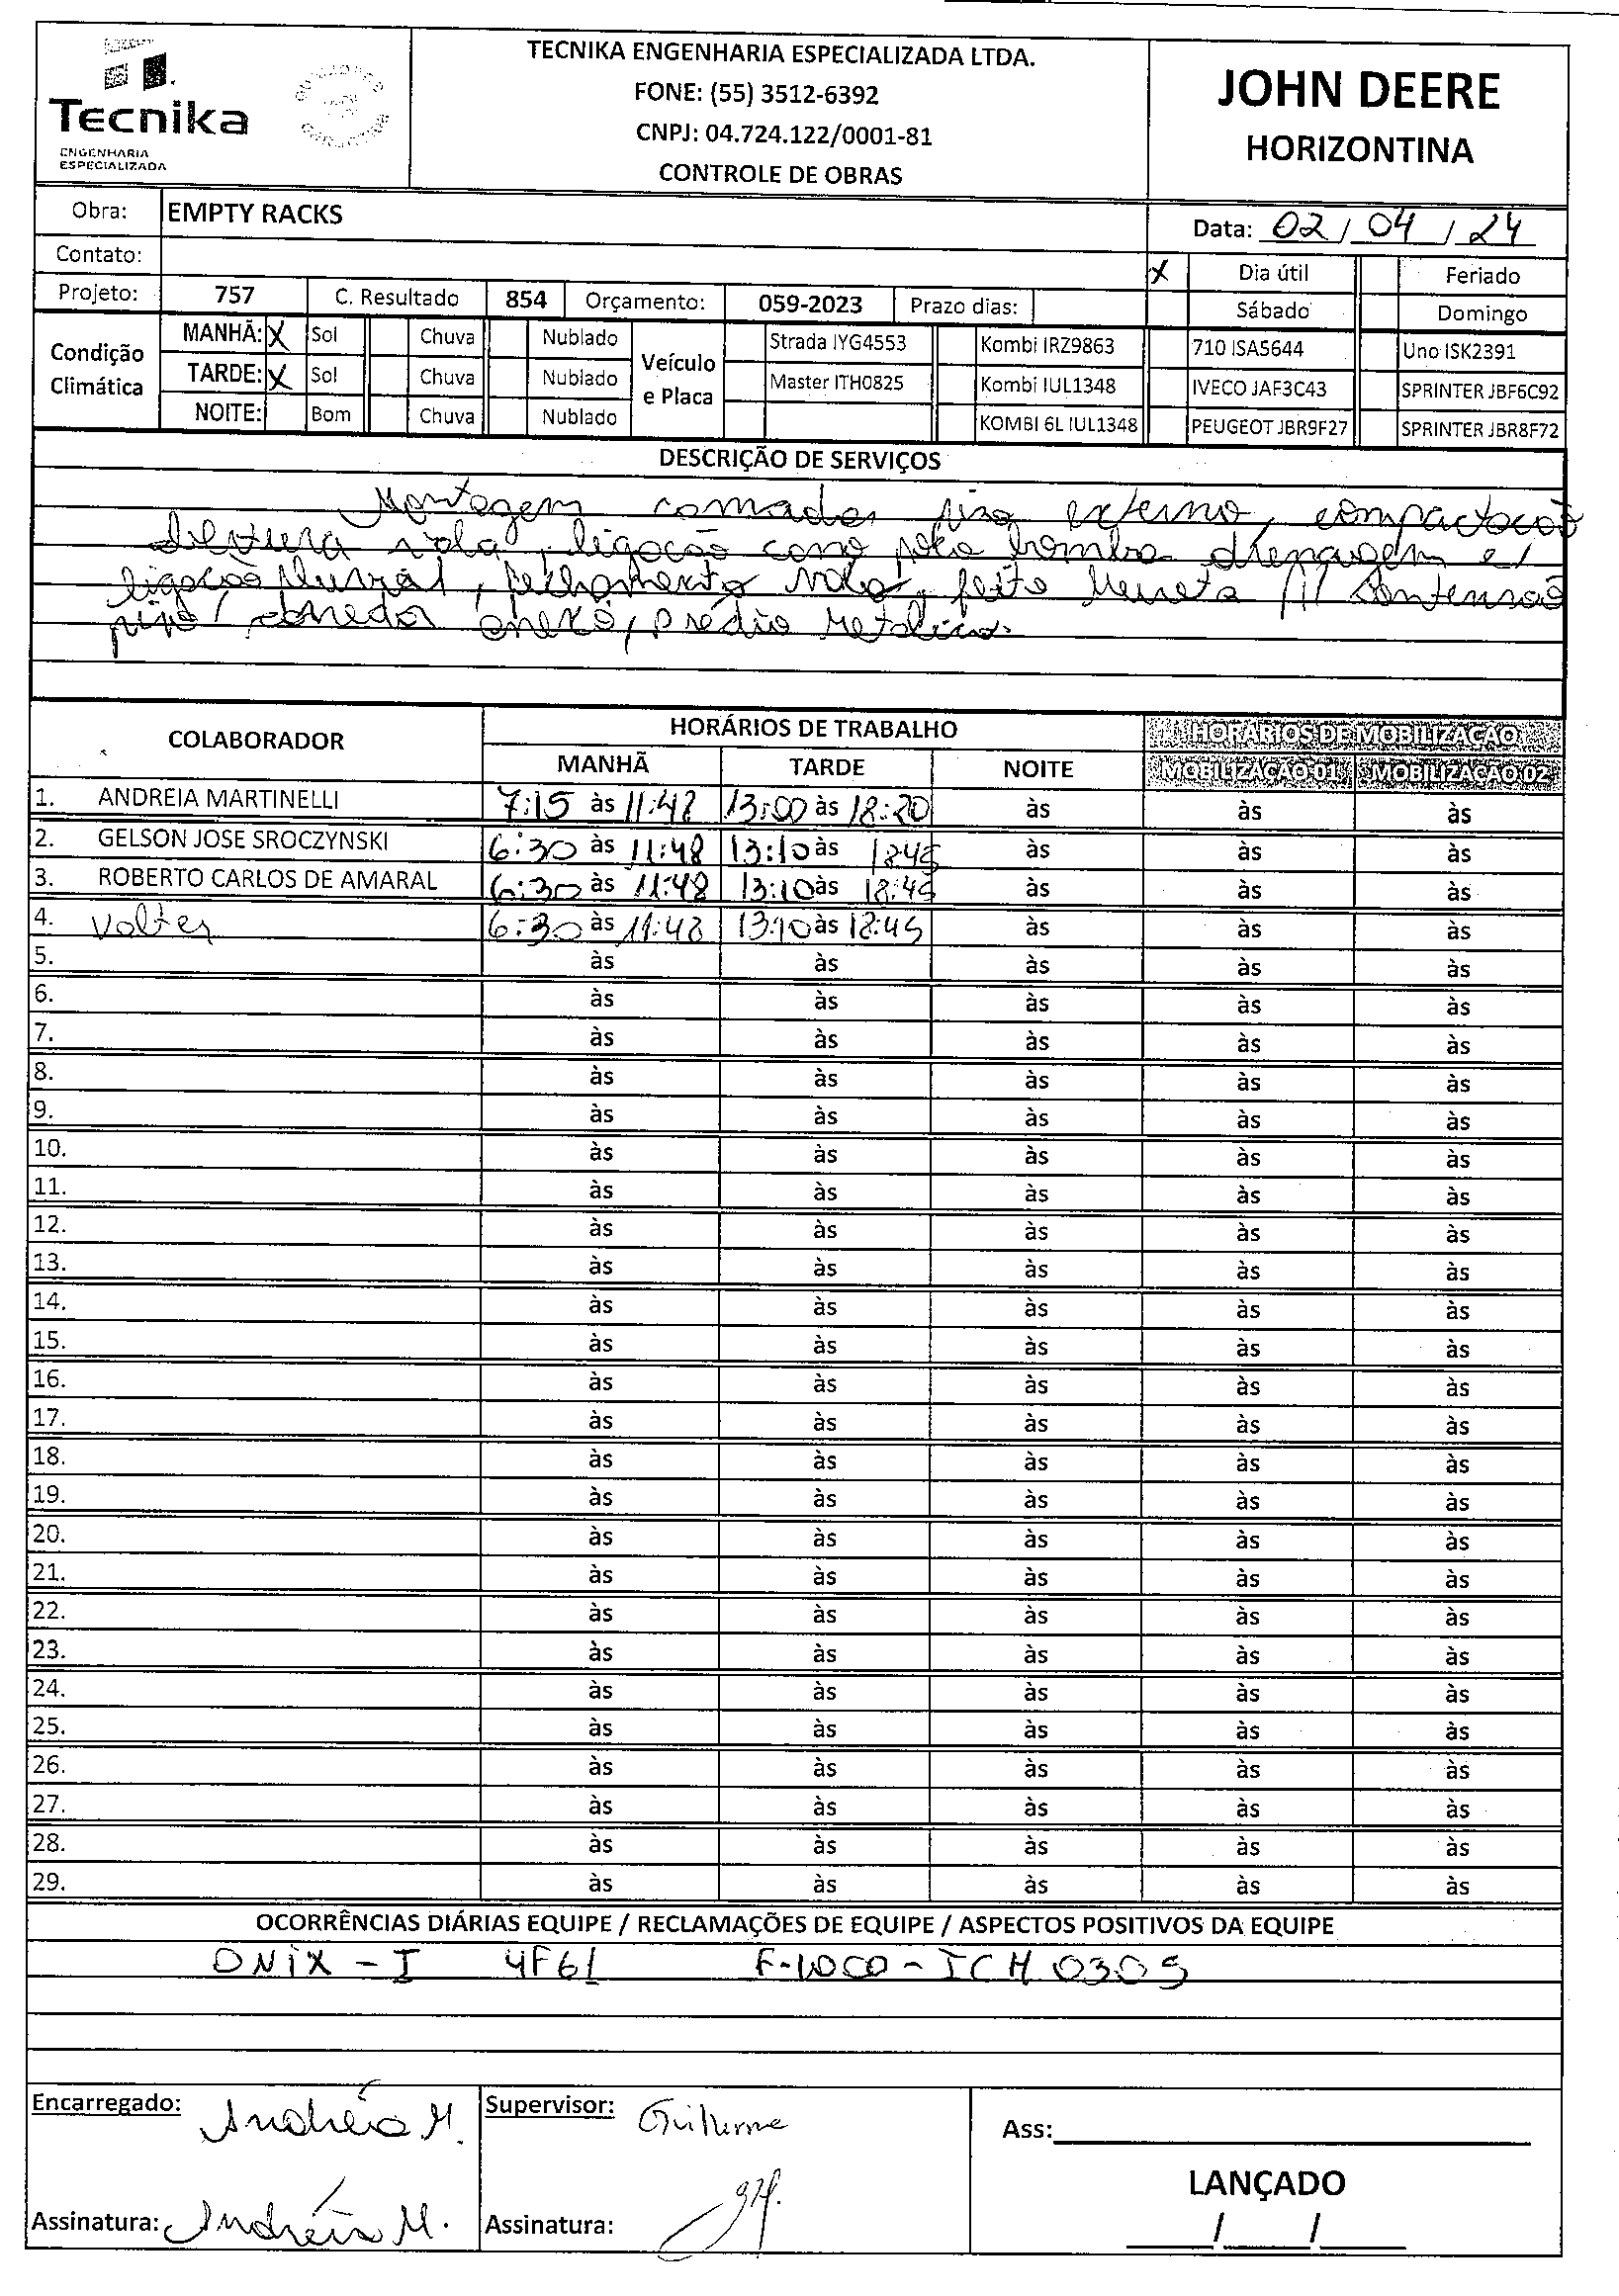 Tecnika
ENGENHARIA
ESPECIALIZADA
TECNIKA ENGENHARIA ESPECIALIZADA LTDA.
FONE: (55) 3512-6392
CNPJ: 04.724.122/0001-81
CONTROLE DE OBRAS
JOHN DEERE
HORIZONTINA
Obra: EMPTY RACKS
Data: 02/04/24
Contato:
X Dia útil Feriado
Projeto: 757 C. Resultado 854 Orçamento: 059-2023 Prazo dias: Sábado Domingo
Condição Climática
MANHÃ: X Sol Chuva Nublado
TARDE: X Sol Chuva Nublado
NOITE: Bom Chuva Nublado
Veículo e Placa
Strada IYG4553 Kombi IRZ9863 710 ISA5644 Uno ISK2391
Master ITH0825 Kombi IUL1348 IVECO JAF3C43 SPRINTER JBF6C92
KOMBI 6L IUL1348 PEUGEOT JBR9F27 SPRINTER JBR8F72
DESCRIÇÃO DE SERVIÇOS
Montagem camadas piso externo, compactação
vala, ligação cano bomba drenagem e
ligação Pluvial, fechamento vala, feito Mureta p/ Contensão
piso corredor anexo, prédio Metalico.
COLABORADOR HORÁRIOS DE TRABALHO HORÁRIOS DE MOBILIZAÇÃO
MANHÃ TARDE NOITE MOBILIZAÇÃO 01 MOBILIZAÇÃO 02
1. ANDREIA MARTINELLI 7:15 às 11:48 13:00 às 18:20 às às às
2. GELSON JOSE SROCZYNSKI 6:30 às 11:48 13:10 às 18:45 às às às
3. ROBERTO CARLOS DE AMARAL 6:30 às 11:48 13:10 às 18:45 às às às
4. Volter 6:30 às 11:48 13:10 às 18:45 às às às
5. às às às às às
6. às às às às às
7. às às às às às
8. às às às às às
9. às às às às às
10. às às às às às
11. às às às às às
12. às às às às às
13. às às às às às
14. às às às às às
15. às às às às às
16. às às às às às
17. às às às às às
18. às às às às às
19. às às às às às
20. às às às às às
21. às às às às às
22. às às às às às
23. às às às às às
24. às às às às às
25. às às às às às
26. às às às às às
27. às às às às às
28. às às às às às
29. às às às às às
OCORRÊNCIAS DIÁRIAS EQUIPE / RECLAMAÇÕES DE EQUIPE / ASPECTOS POSITIVOS DA EQUIPE
ONIX - I 4F61 F-1000 - ICH 0305
Encarregado: Andréia M. Supervisor: Guilherme
Ass:
LANÇADO
Assinatura: Andréia M. Assinatura:
/ /